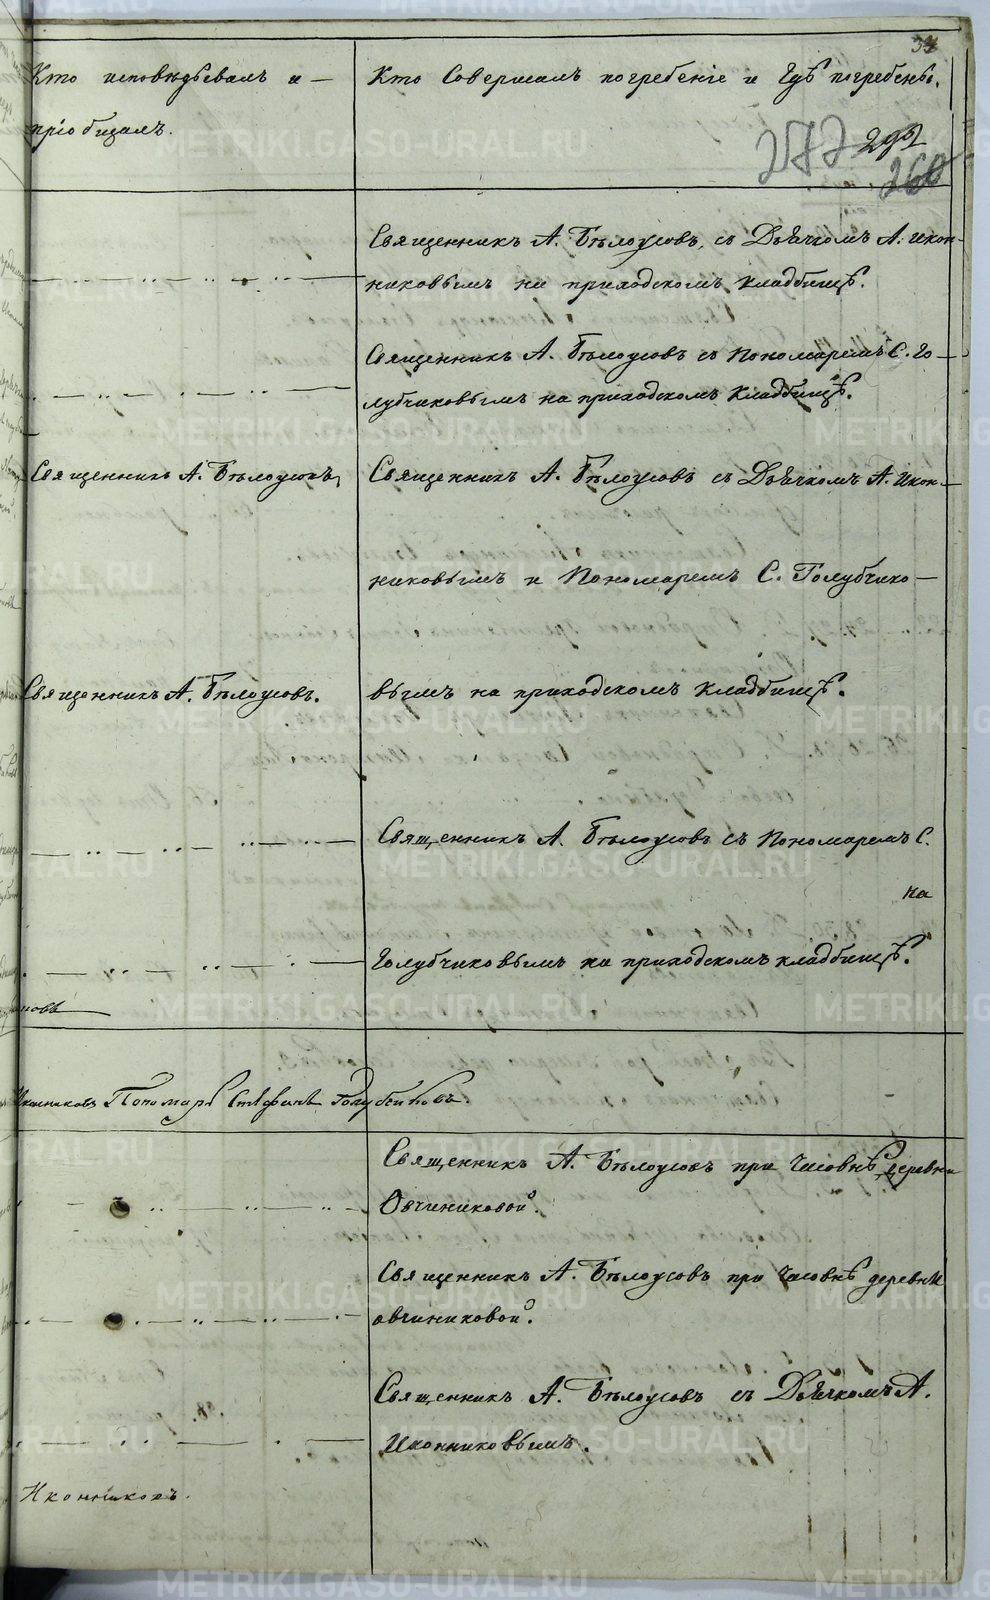 Кто исповѣдывалъ и —
пріобщалъ.
Кто Совершалъ погребеніе и Гдѣ погребены.
272 292
260
Священникъ А. Бѣлоусовъ, съ Дьячкомъ А. Икон-
никовымъ на приходскомъ кладбищѣ.
Священникъ А. Бѣлоусовъ съ Пономаремъ С. Го—
лубчиковымъ на приходскомъ кладбищѣ.
Священникъ А. Бѣлоусовъ,
Священникъ А. Бѣлоусовъ съ Дьячкомъ А. Икон—
никовымъ и Пономаремъ С. Голубчико—
Священникъ А. Бѣлоусовъ.
вымъ на приходскомъ кладбищѣ.
Священникъ А. Бѣлоусовъ съ Пономаремъ С.
на
Голубчиковымъ на приходскомъ кладбищѣ.
новъ
Иконниковъ Пономарь Стефанъ Голубчиковъ.
Священникъ А. Бѣлоусовъ при Часовнѣ деревни
Овчиниковой.
Священникъ А. Бѣлоусовъ при Часовнѣ деревни
овчиниковой.
Священникъ А. Бѣлоусовъ съ Дьячкомъ А.
Иконниковымъ.
Иконниковъ.
METRIKI.GASO-URAL.RU